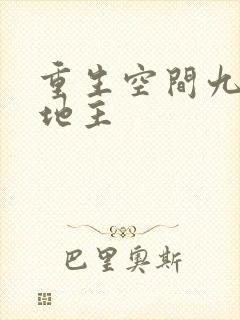 重生空間九
地主
巴里奧斯